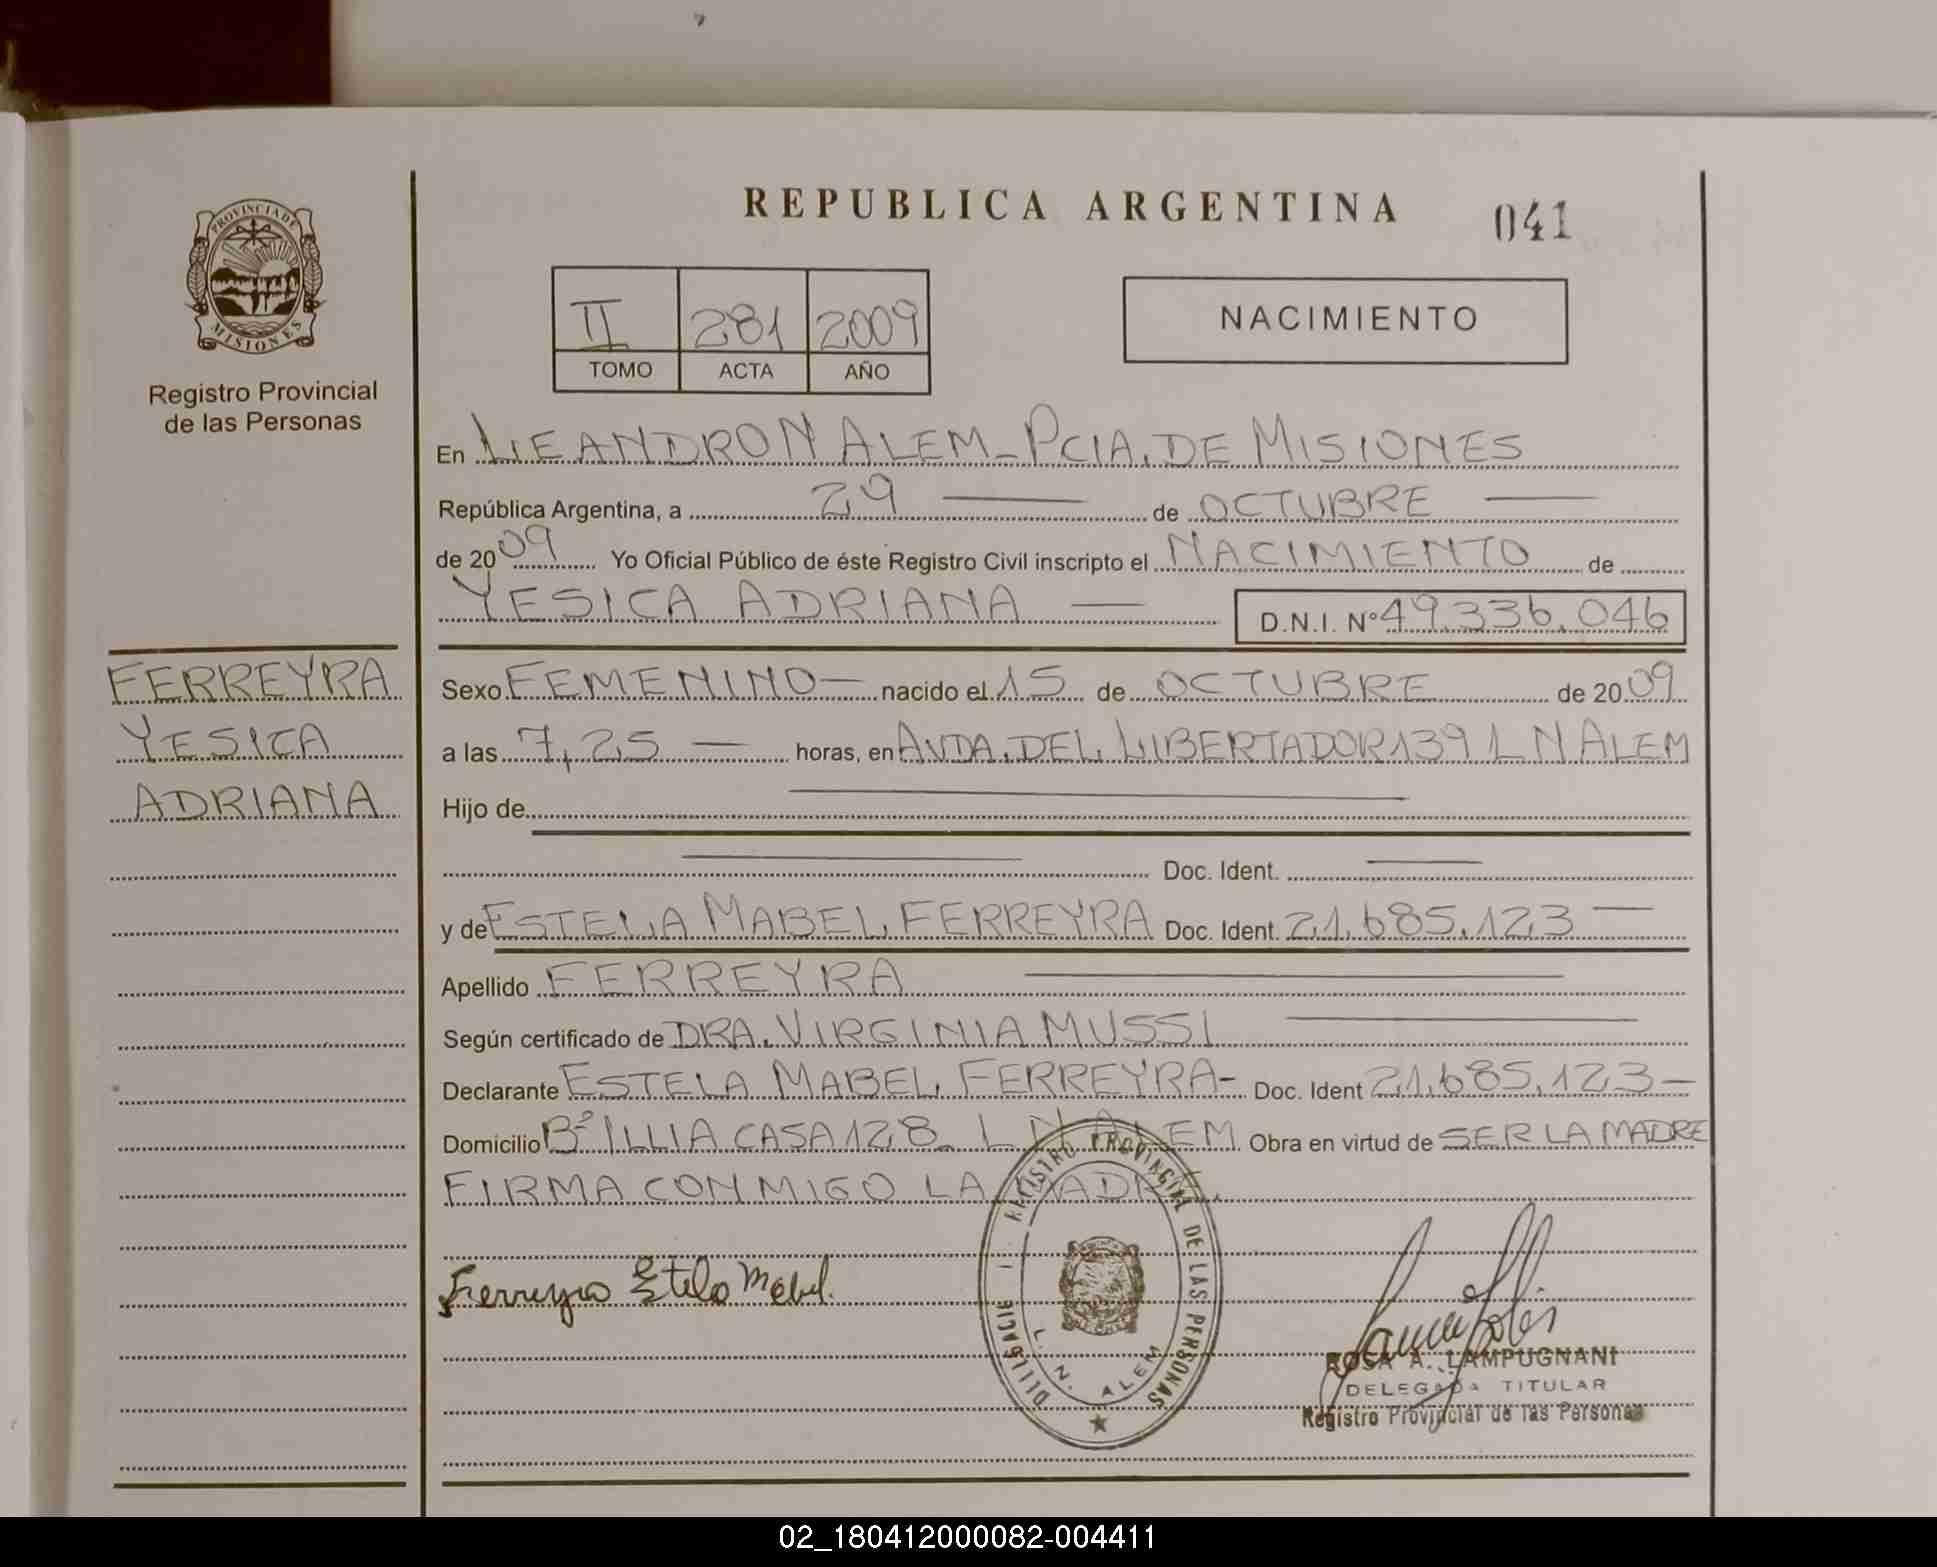 REPUBLICA ARGENTINA
041
PROVINCIA DE MISIONES
Registro Provincial
de las Personas
II 281 2009
TOMO ACTA AÑO
NACIMIENTO
En LEANDRO N ALEM - PCIA. DE MISIONES
República Argentina, a 29 de OCTUBRE
de 2009 Yo Oficial Público de éste Registro Civil inscripto el NACIMIENTO de
YESICA ADRIANA — D.N.I. Nº 49.336.046
FERREYRA
YESICA
ADRIANA
Sexo FEMENINO — nacido el 15 de OCTUBRE de 2009
a las 7,25 — horas, en AVDA. DEL LIBERTADOR 139 L N ALEM
Hijo de
Doc. Ident.
y de ESTELA MABEL FERREYRA Doc. Ident. 21.685.123 —
Apellido FERREYRA
Según certificado de DRA. VIRGINIA MUSSI
Declarante ESTELA MABEL FERREYRA - Doc. Ident 21.685.123 —
Domicilio Bº ILLIA CASA 128 - L N ALEM Obra en virtud de SER LA MADRE
FIRMA CONMIGO LA MADRE.
Ferreyra Estela Mabel.
REGISTRO PROVINCIAL DE LAS PERSONAS
L. N. ALEM
ROSA A. LAMPUGNANI
DELEGADA TITULAR
Registro Provincial de las Personas
02_180412000082-004411